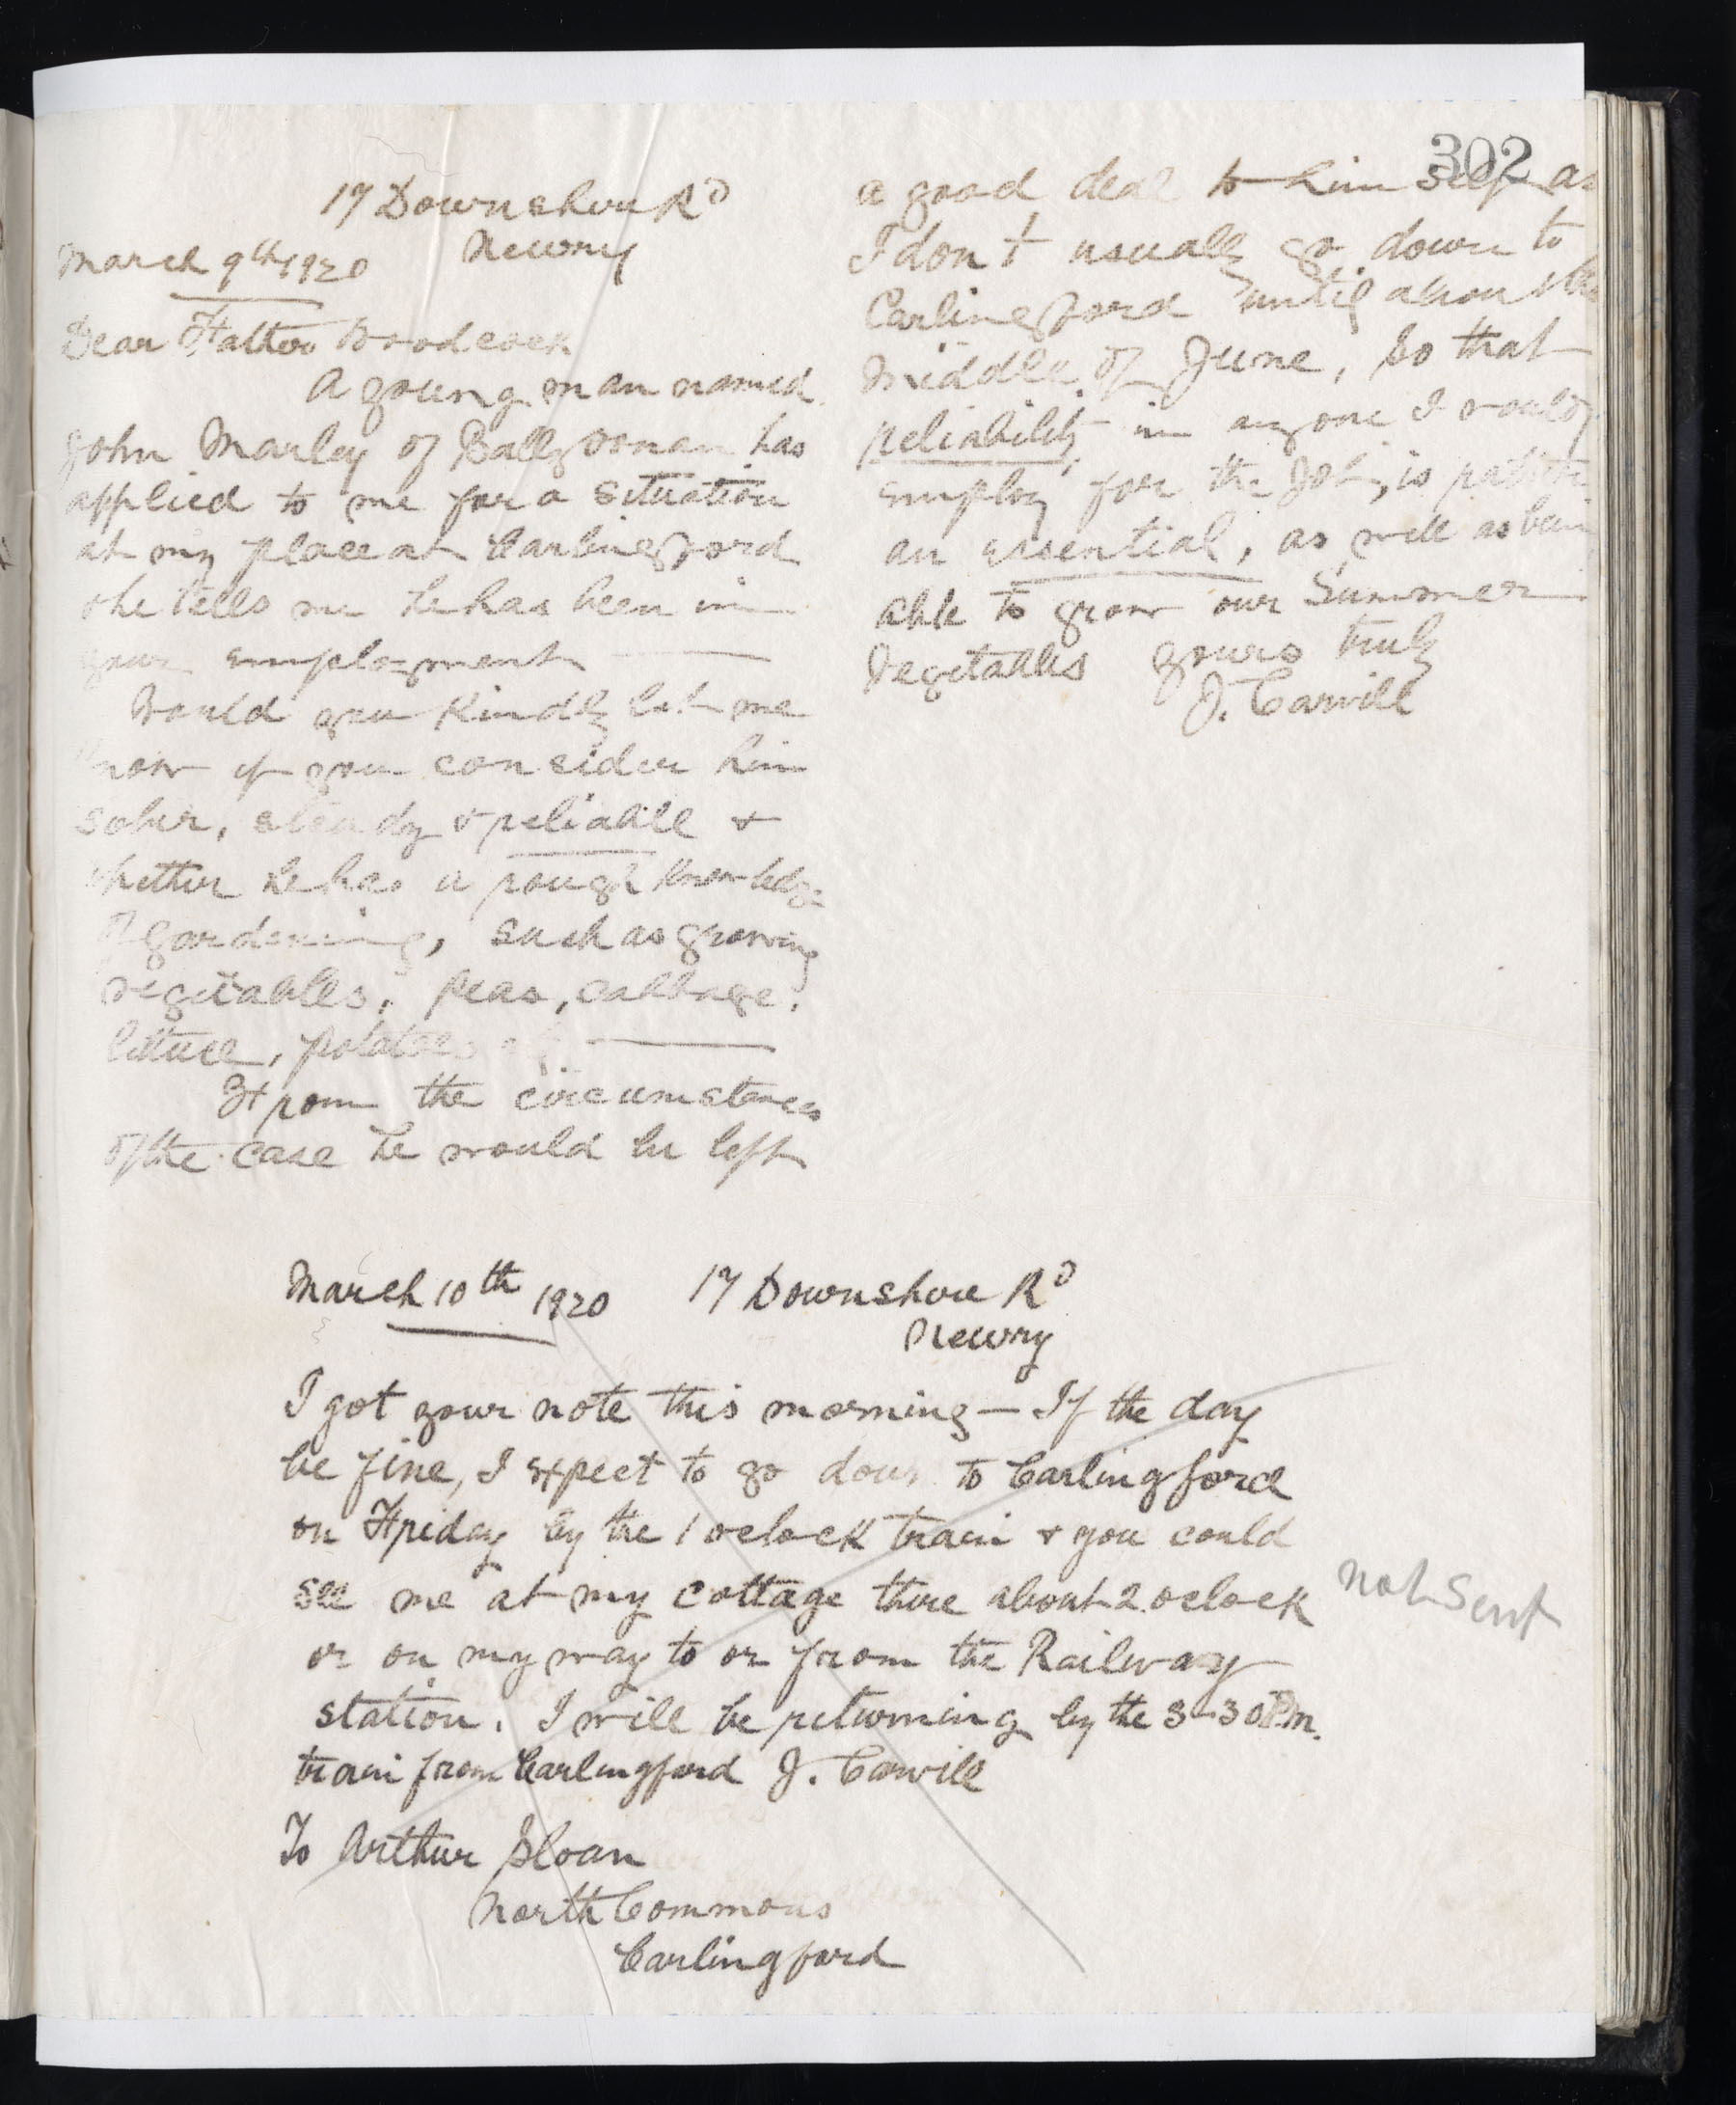 302
17 Downshire Rd
Newry
March 9th 1920
Dear Father Woodcock
A young man named
John Marley of Ballyonan has
applied to me for a situation
at my place at Carlingford
& he tells me he has been in
your employment —
Would you kindly let me
know if you consider him
sober, steady & reliable &
whether he has a rough knowledge
of gardening, such as growing
vegitables, peas, cabbage,
lettuce, potatoes —
From the circumstances
of the case he would be left
a good deal to himself as
I don't usually go down to
Carlingford until about the
middle of June, so that
reliability in anyone I would
employ for the Job, is rather
an essential, as well as being
able to grow our Summer
Vegitables yours truly
J. Carvill
March 10th 1920 17 Downshire Rd
Newry
I got your note this morning — If the day
be fine, I expect to go down to Carlingford
on Friday by the 1 oclock train & you could
see me at my cottage there about 2 oclock
or on my way to or from the Railway
station. I will be returning by the 3-30 P.m.
train from Carlingford J. Carvill
not Sent
To Arthur Sloan
North Commons
Carlingford